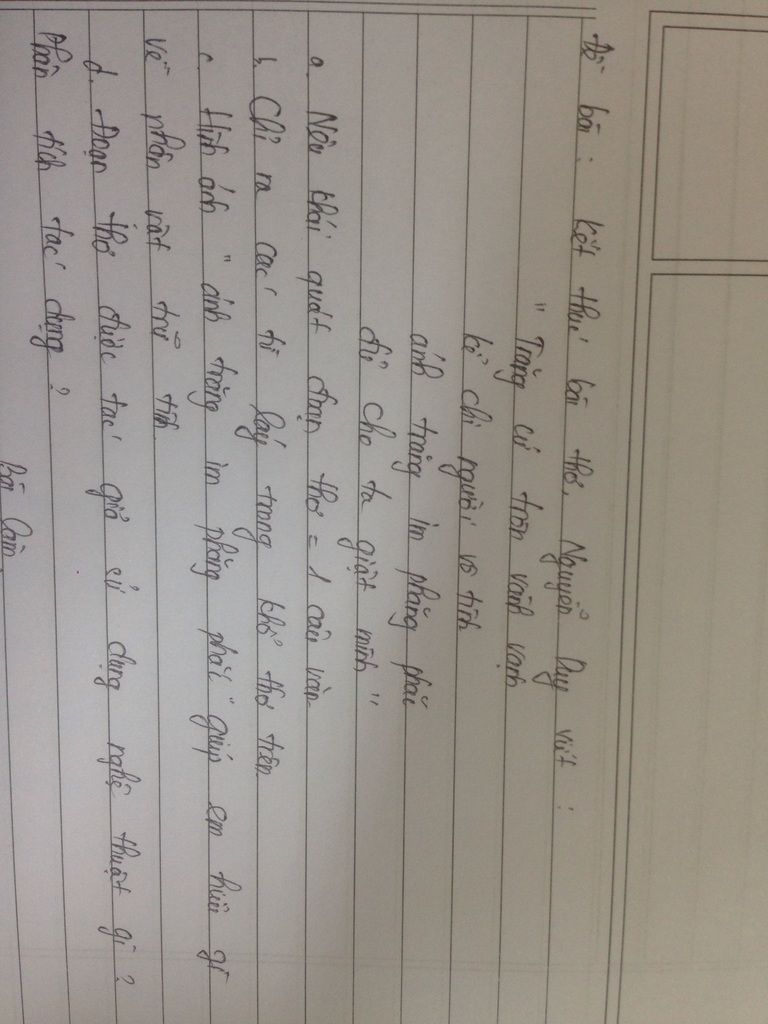 Đề bài : Kết thúc bài thơ, Nguyễn Duy viết :
" Trăng cứ tròn vành vạnh
kể chi người vô tình
ánh trăng im phăng phắc
đủ cho ta giật mình "
a. Nêu khái quát đoạn thơ = 1 câu văn
b, Chỉ ra các từ láy trong khổ thơ trên
c. Hình ảnh " ánh trăng im phăng phắc " giúp em hiểu gì
về nhân vật trữ tình
d. Đoạn thơ được tác giả sử dụng nghệ thuật gì ?
Phân tích tác dụng ?
Bài làm